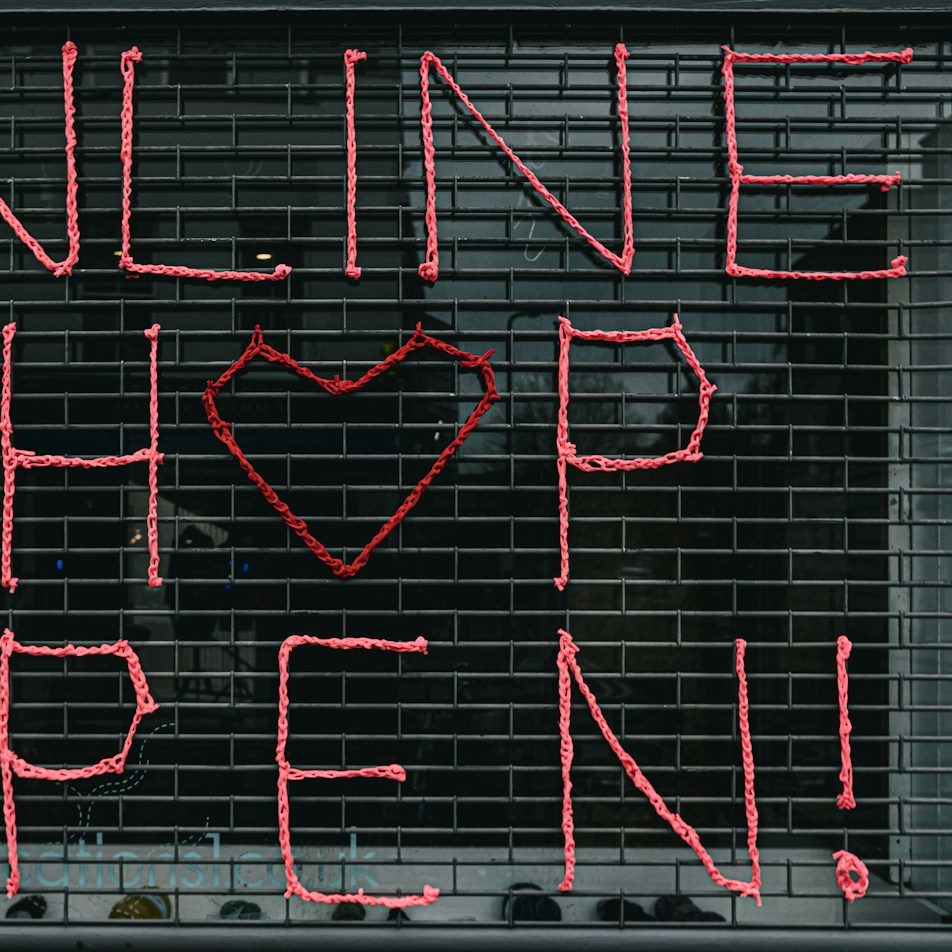 NLINE
H♥P
PEN!
cations1.co.uk